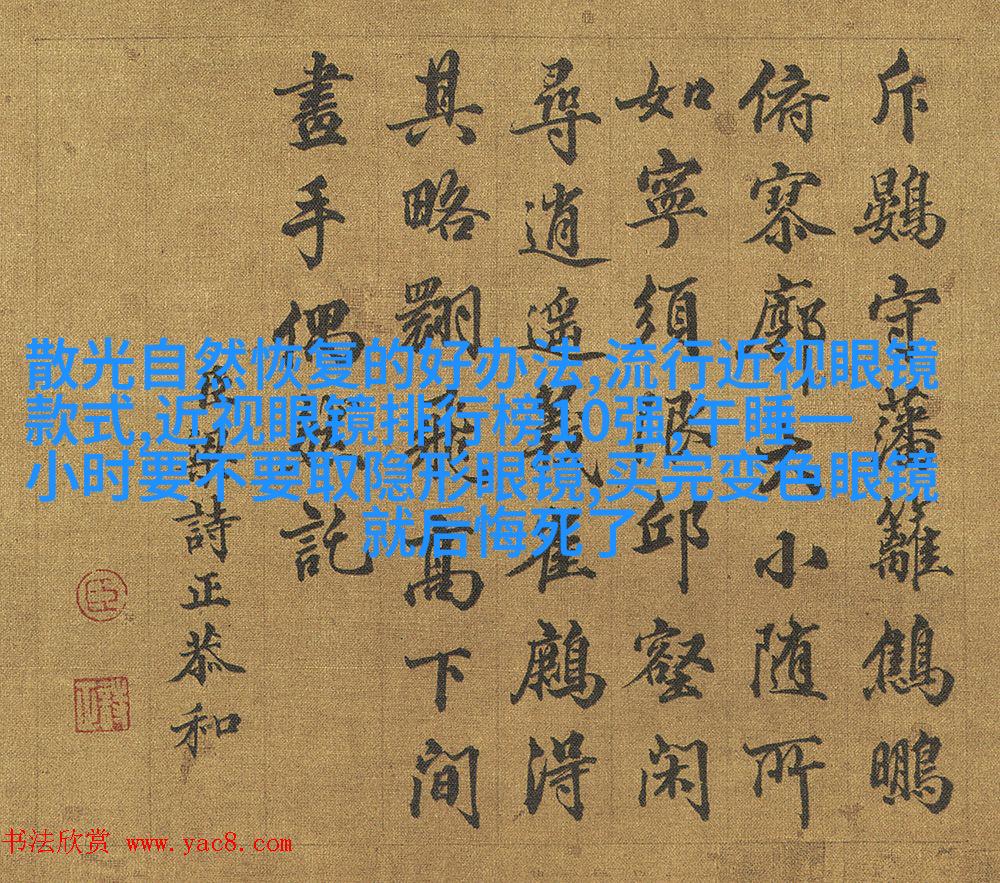 斥鷃守藩籬鷦鵬
俯寥廓小随所
如寧須限邱壑閑
尋逍遥義得
其略翾飛高下間
畫手偶託
臣詩正恭和
散光自然恢复的好办法,流行近视眼镜
款式,近视眼镜排行榜10强,午睡一
小时要不要取隐形眼镜,买完变色眼镜
就后悔死了
书法欣赏 www.yac8.com